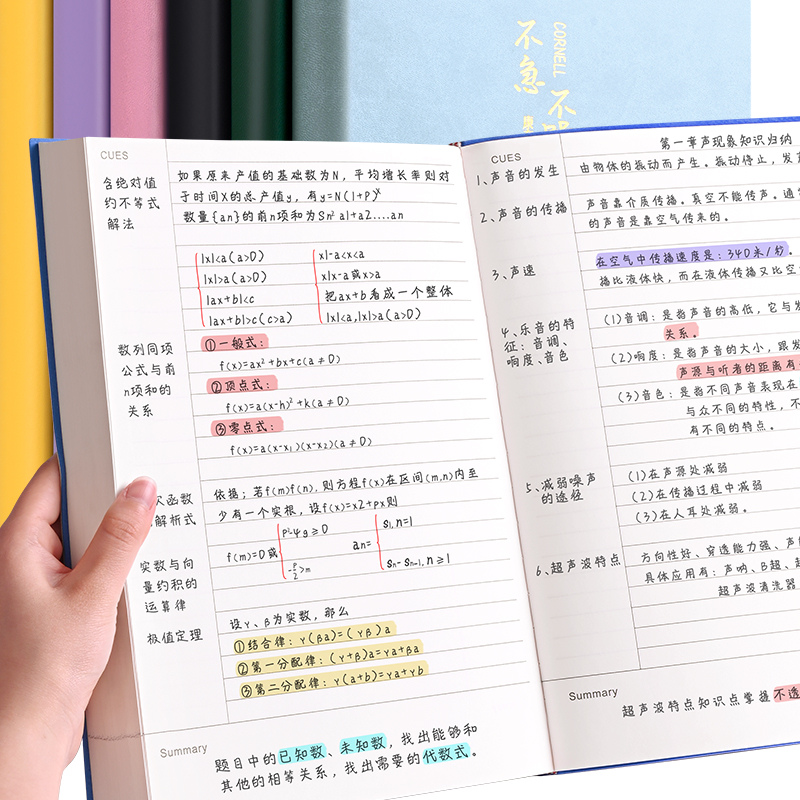 CORNELL
不急
不
CUES
含绝对值
约不等式
解法
如果原来产值的基础数为N，平均增长率则对
于时间X的总产值y，有y=N(1+P)ˣ
数量{an}的前n项和为Sn²a1+a2....an
|x|<a(a>0)
|x|>a(a>0)
|ax+b|<c
|ax+b|>c(c>a)
x|-a<x<a
x|x-a或x>a
把ax+b看成一个整体
|x|<a,|x|>a(a>0)
数列同项
公式与前
n项和的
关系
①一般式：
f(x)=ax²+bx+c(a≠0)
②顶点式：
f(x)=a(x-h)²+k(a≠0)
③零点式：
f(x)=a(x-x₁)(x-x₂)(a≠0)
次函数
解析式
依据；若f(m)f(n),则方程f(x)在区间(m,n)内至
少有一个实根，设f(x)=x2+px则
f(m)=0或
an=
S₁,n=1
Sn-Sn-1,n≥1
实数与向
量约积的
运算律
极值定理
设γ、β为实数，那么
①结合律：γ(βa)=(γβ)a
②第一分配律：(γ+β)a=γa+βa
③第二分配律：γ(a+b)=γa+γb
Summary
题目中的已知数、未知数，找出能够和
其他的相等关系，找出需要的代数式。
第一章声现象知识归纳
CUES
1、声音的发生
由物体的振动而产生。振动停止，发
2、声音的传播
声音靠介质传播。真空不能传声。通
的声音是靠空气传来的。
3、声速
在空气中传播速度是：340米/秒。
播比液体快，而在液体传播又比空
4、乐音的特
征：音调、
响度、音色
(1)音调：是指声音的高低，它与发
关系。
(2)响度：是指声音的大小，跟发
声源与听者的距离有
(3)音色：是指不同声音表现在
与众不同的特性，不
有不同的特点。
5、减弱噪声
的途径
(1)在声源处减弱
(2)在传播过程中减弱
(3)在人耳处减弱。
6、超声波特点
方向性好、穿透能力强、声
具体应用有：声呐、B超、超
超声波清洗器
Summary
超声波特点知识点掌握不透